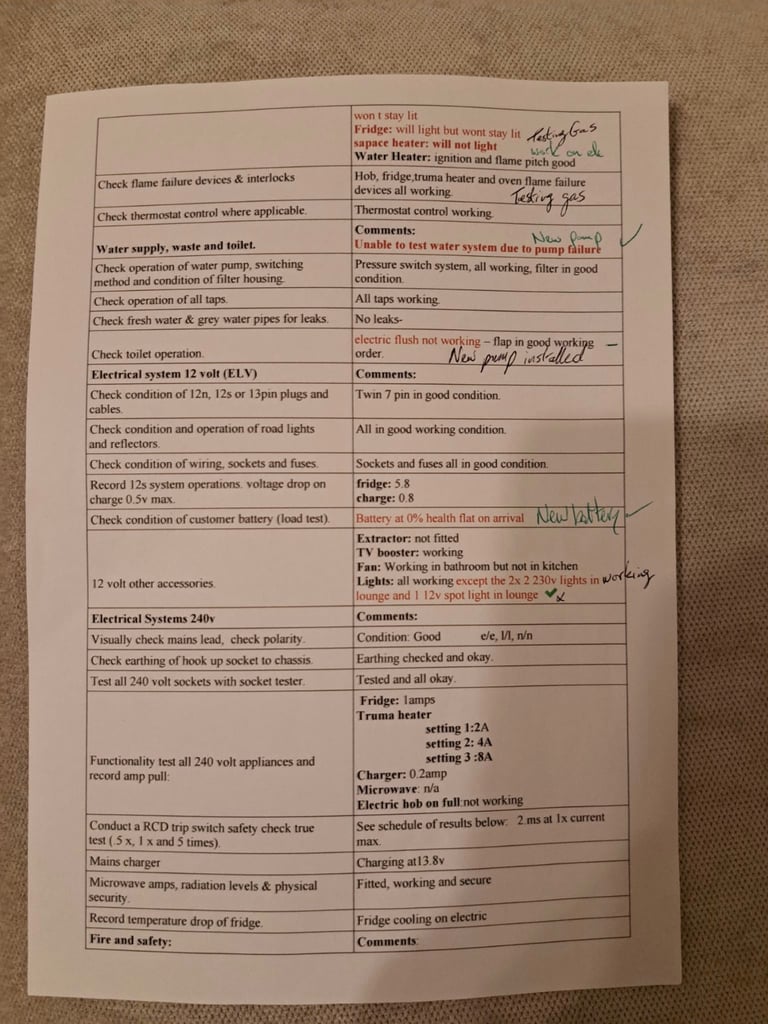 won t stay lit
Fridge: will light but wont stay lit Testing Gas
sapace heater: will not light work on ele
Water Heater: ignition and flame pitch good
Check flame failure devices & interlocks
Hob, fridge,truma heater and oven flame failure
devices all working. Testing gas
Check thermostat control where applicable.
Thermostat control working.
Water supply, waste and toilet.
Comments: New pump
Unable to test water system due to pump failure ✓
Check operation of water pump, switching
method and condition of filter housing.
Pressure switch system, all working, filter in good
condition.
Check operation of all taps.
All taps working.
Check fresh water & grey water pipes for leaks.
No leaks-
Check toilet operation.
electric flush not working – flap in good working –
order. New pump installed
Electrical system 12 volt (ELV)
Comments:
Check condition of 12n, 12s or 13pin plugs and
cables.
Twin 7 pin in good condition.
Check condition and operation of road lights
and reflectors.
All in good working condition.
Check condition of wiring, sockets and fuses.
Sockets and fuses all in good condition.
Record 12s system operations. voltage drop on
charge 0.5v max.
fridge: 5.8
charge: 0.8
Check condition of customer battery (load test).
Battery at 0% health flat on arrival New battery ✓
12 volt other accessories.
Extractor: not fitted
TV booster: working
Fan: Working in bathroom but not in kitchen
Lights: all working except the 2x 2 230v lights in working
lounge and 1 12v spot light in lounge ✔ x
Electrical Systems 240v
Comments:
Visually check mains lead, check polarity.
Condition: Good e/e, l/l, n/n
Check earthing of hook up socket to chassis.
Earthing checked and okay.
Test all 240 volt sockets with socket tester.
Tested and all okay.
Functionality test all 240 volt appliances and
record amp pull:
Fridge: 1amps
Truma heater
setting 1:2A
setting 2: 4A
setting 3 :8A
Charger: 0.2amp
Microwave: n/a
Electric hob on full:not working
Conduct a RCD trip switch safety check true
test (.5 x, 1 x and 5 times).
See schedule of results below: 2.ms at 1x current
max.
Mains charger
Charging at13.8v
Microwave amps, radiation levels & physical
security.
Fitted, working and secure
Record temperature drop of fridge.
Fridge cooling on electric
Fire and safety:
Comments: